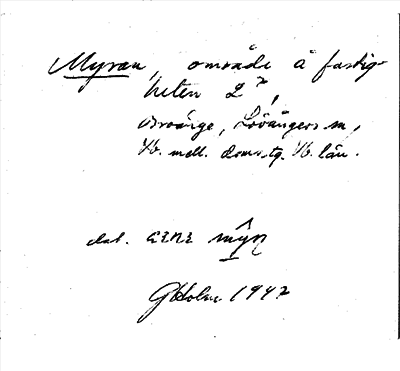 Myran, område å fastig-
heten 2⁷,
Broänge, Lövångers sn,
Vb. mell. doms.tg. Vb. län.
dat.
G Holm 1947